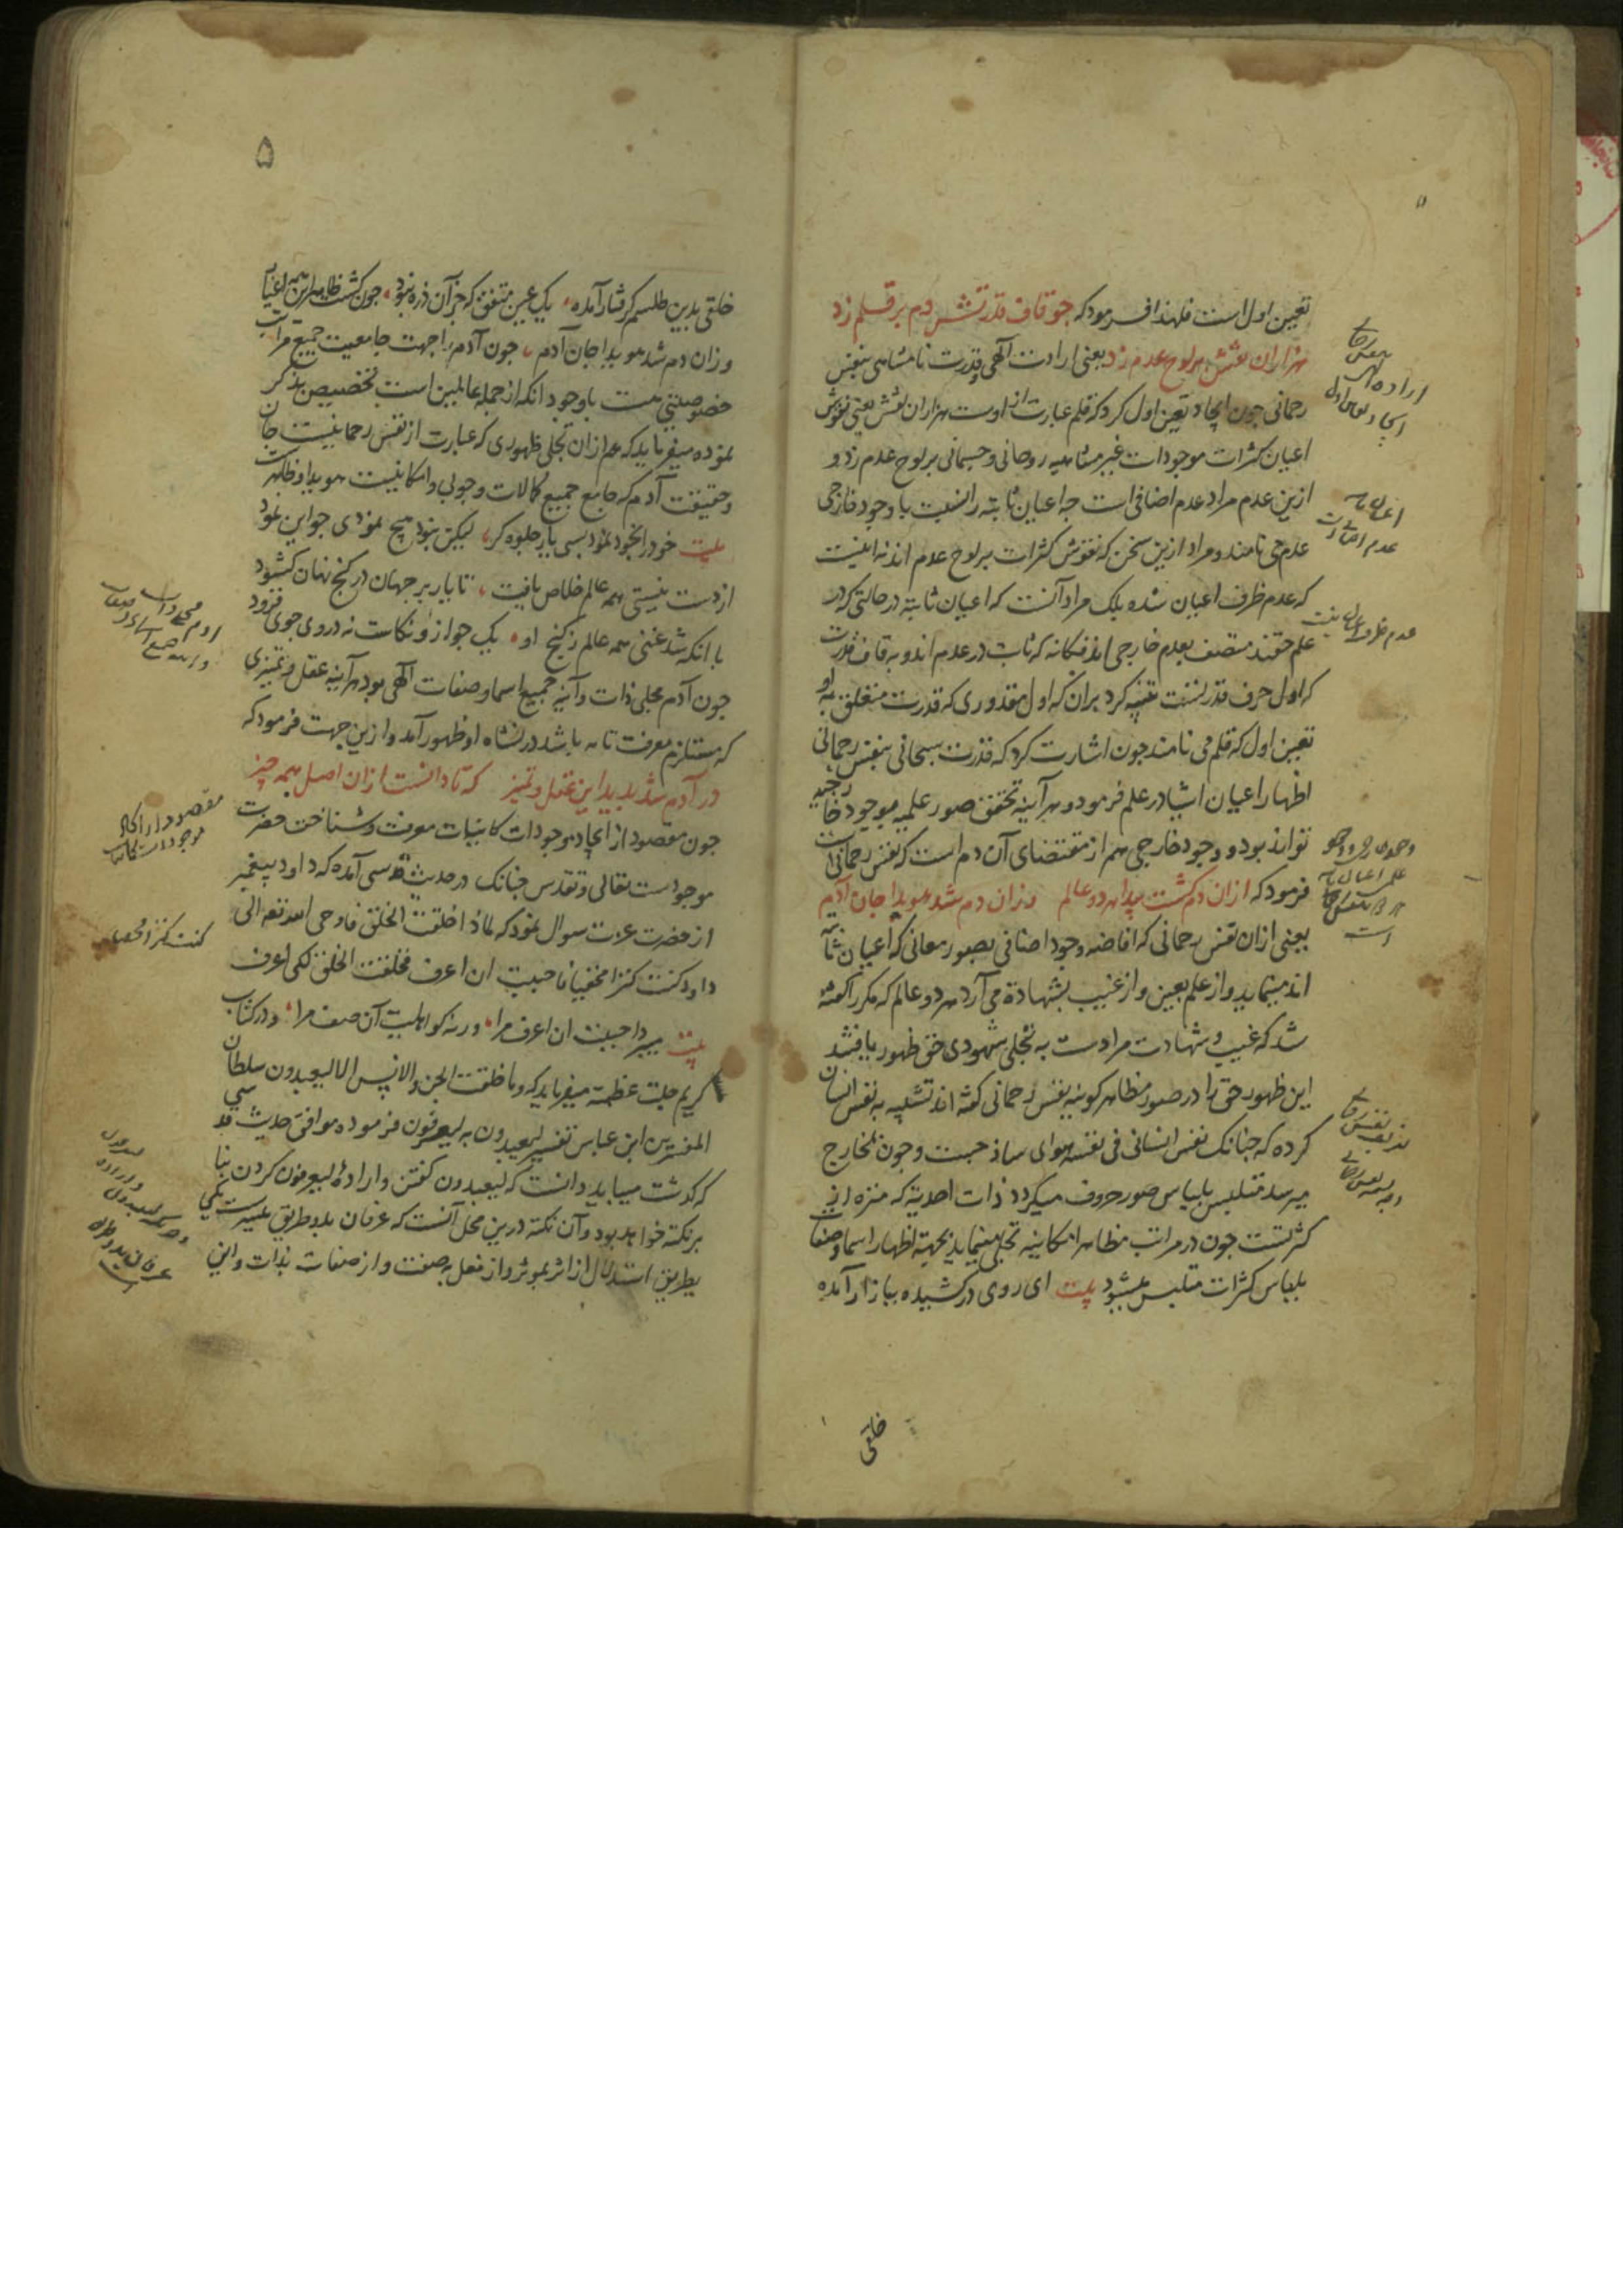 تعین اول است فلهذا فرمود که چو قاف قدرتش دم بر قلم زد
هزاران نقش بر لوح عدم زد یعنی ارادت آلهی و قدرت نامتناهی بنفس
رحمانی جون ایجاد تعین اول کرد که قلم عبارت از اوست هزاران نقش یعنی نقوش
اعیان کثرات موجودات غیر متناهیه روحانی و جسمانی بر لوح عدم زد و
ازین عدم مراد عدم اضافی است چه اعیان ثابته را نسبت با وجود خارجی
عدم می نامند و مراد ازین سخن که نقوش کثرات بر لوح عدم اند نه اینست
که عدم ظرف اعیان شده بلک مراد آنست که اعیان ثابته در حالتی که در
علم حقند متصف بعدم خارجی اند فکانه که ثابت در عدم اند و به قاف قدرت
که اول حرف قدرتست تنبیه کرد بران که اول مقدوری که قدرت متعلق به او
تعین اول که قلم می نامند جون اشارت کرد که قدرت سبحانی بنفس رحمانی
اظهار اعیان اشیا در علم فرمود و هر آینه تحقق صور علمیه بوجود خارجیه
تواند بود و وجود خارجی هم از مقتضای آن دم است که نفس رحمانی است
فرمود که ازان دم کشت پیدا هر دو عالم وزان دم شد هویدا جان آدم
یعنی ازان نفس رحمانی که افاضه وجود اضافی بصور معانی که اعیان ثابته
اند مینماید و از علم بعین و از غیب بشهادة می آرد هر دو عالم که مکرر کفته
شد که غیب و شهادت مرادست به تجلی شهودی حق ظهور یافتند
این ظهور حق را در صور مظاهر کونیه نفس رحمانی کفته اند تشبیه به نفس انسان
کرده که جنانک نفس انسانی فی نفسه هوای ساذجست و جون بمخارج
میرسد متلبس بلباس صور حروف میکردد ذات احدیة که منزه از
کثرتست جون در مراتب مظاهر امکانیه تجلی مینماید بجهة اظهار اسما و صفات
بلباس کثرات متلبس میشود بیت ای روی درکشیده ببازار آمده
خلقی
اراده
ایجاد
عدم ظرف اعیان نیست
۵
خلقی بدین طلسم کرفتار آمده یک عین متفق که جز آن ذره نبود جون کشت ظاهر این همه اغیار
وزان دم شد هویدا جان آدم جون آدم را جهت جامعیت جمیع مراتب
خصوصیتی هست باوجود آنکه از جمله عالمین است تخصیص بذکر
نموده میفرماید که هم ازان تجلی ظهوری که عبارت از نفس رحمانیست جان
و حقیقت آدم که جامع جمیع کمالات وجوبی و امکانیست هویدا و ظاهر
بیت خود را بخود نمود بسی یار جلوه کر لیکن نبود هیچ نمودی جو این نمود
از دست نیستی همه عالم خلاص یافت تا یار بر جهان در کنج نهان کشود
با انکه شد غنی همه عالم ز کنج او یک جو ازو نکاست نه در وی جوی فزود
جون آدم مجلی ذات و آینه جمیع اسما و صفات آلهی بود هر آینه عقل و تمیزی
که مستلزم معرفت تامه باشد در نشاه او ظهور آمد و ازین جهت فرمود که
در آدم شد پدید این عقل و تمیز که تا دانست ازان اصل همه چیز
جون مقصود از ایجاد موجودات کاینات معرفت و شناخت حضرت
موجودست تعالی و تقدس جنانک در حدیث قدسی آمده که داود پیغمبر
از حضرت عزت سوال نمود که لماذا خلقت الخلق فاوحی الله تعالی
داود کنت کنزا مخفیا فاحببت ان اعرف فخلقت الخلق لکی اعرف
بیت احببت ان اعرف مرا ورنه کو اهلیت آن صف مرا و در کتاب
کریم جلت عظمته میفرماید که وما خلقت الجن والانس الا لیعبدون سلطان
المفسرین ابن عباس تفسیر لیعبدون به لیعرفون فرموده موافق حدیث قدسی
که کذشت میباید دانست که لیعبدون کفتن و اراده لیعرفون کردن بنا
بر نکته خواهد بود و آن نکته درین محل آنست که عرفان بدو طریق میسرست یکی
بطریق استدلال از اثر بموثر و از فعل بصفت و از صفات بذات و این
مقصود از ایجاد
موجودات کاینات
کنت کنزا مخفیا